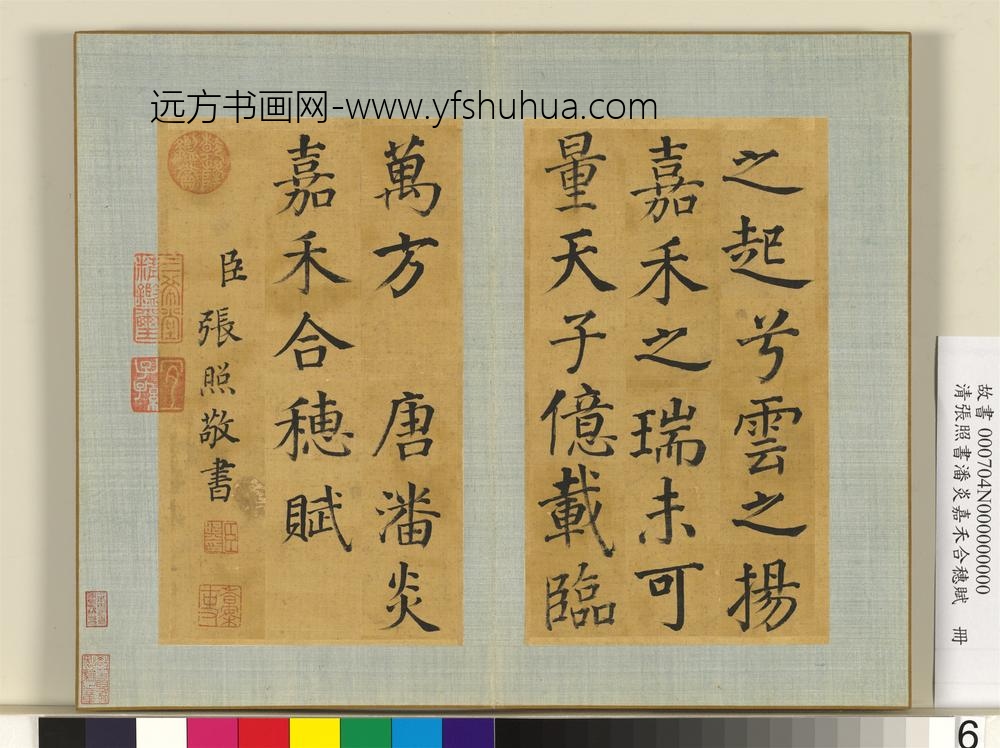 远方书画网-www.yfshuhua.com
之起兮雲之揚
嘉禾之瑞未可
量天子億載臨
萬方 唐潘炎
嘉禾合穗賦
臣張照敬書
三希堂
精鑑璽
宜子孫
故書 000704N000000000
清張照書潘炎嘉禾合穗賦 冊
6